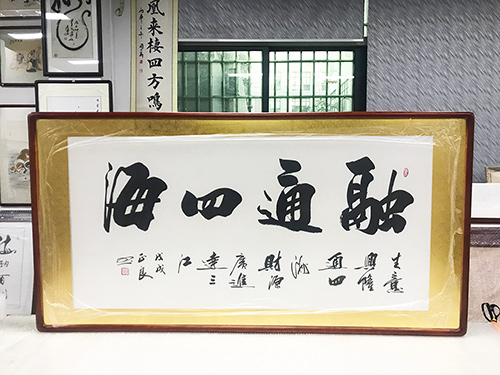 凰來棲四方鳴
融通四海
生意
興隆
通四
海
財源
廣進
達三
江
戊戌